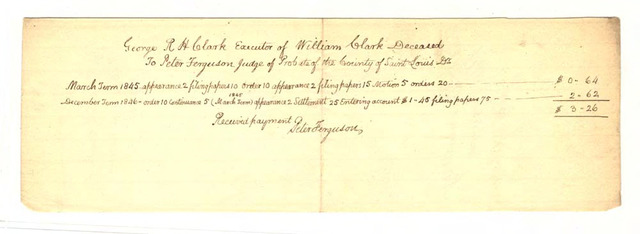 George R H Clark Executor of William Clark Deceased
To Peter Ferguson Judge of Probate of the County of Saint Louis Dr
March Term 1845 appearance 2 filing papers 10 order 10 appearance 2 filing papers 15 Motion 5 orders 20 — $ 0-64
1845
December Term 1846 - order 10 Continuance 5 (March Term) appearance 2 Settlement 25 Entering account $1-45 filing papers 75 — 2-62
$ 3-26
Received payment
Peter Ferguson